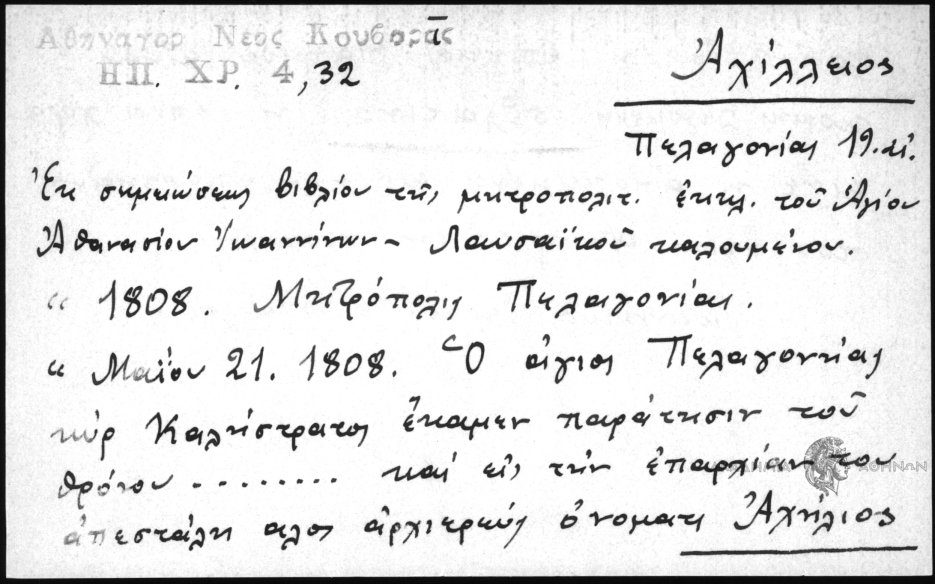 Ἀθηναγορ Νεος Κουβαρᾶς
ΗΠ. ΧΡ. 4,32
Ἀχίλλειος
Πελαγονίας 19. αἰ.
Ἐκ σημειώσεως βιβλίου τῆς μητροπολιτ. ἐκκλ. τοῦ Ἁγίου
Ἀθανασίου Ἰωαννίνων - Λαυσαϊκοῦ καλουμένου.
“ 1808. Μητρόπολις Πελαγονίας.
“ Μαΐου 21. 1808. Ὁ ἅγιος Πελαγονίας
κὺρ Καλήστρατος ἔκαμεν παράτησιν τοῦ
θρόνου ......... καὶ εἰς τὴν ἐπαρχίαν του
ἀπεστάλη αλος ἀρχιερεὺς ὀνόματι Ἀχήλιος
ΑΘΗΝΩΝ